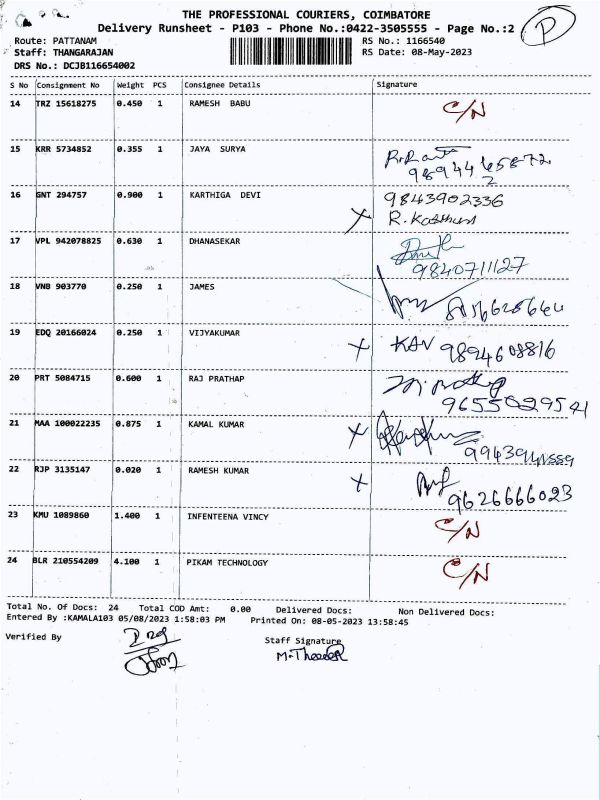 THE PROFESSIONAL COURIERS, COIMBATORE
Delivery Runsheet - P103 - Phone No.:0422-3505555 - Page No.:2
P
Route: PATTANAM
RS No.: 1166540
Staff: THANGARAJAN
RS Date: 08-May-2023
DRS No.: DCJB116654002
S No Consignment No Weight PCS Consignee Details Signature
14 TRZ 15618275 0.450 1 RAMESH BABU C/N
15 KRR 5734852 0.355 1 JAYA SURYA
16 GNT 294757 0.900 1 KARTHIGA DEVI 9843902336
X R.
17 VPL 942078825 0.630 1 DHANASEKAR
9840711127
18 VNB 903770 0.250 1 JAMES
19 EDQ 20166024 0.250 1 VIJYAKUMAR
X KAV 9894608816
20 PRT 5084715 0.600 1 RAJ PRATHAP
9655029541
21 MAA 100022235 0.875 1 KAMAL KUMAR
X
22 RJP 3135147 0.020 1 RAMESH KUMAR
X 9626666023
23 KMU 1089860 1.400 1 INFENTEENA VINCY C/N
24 BLR 210554209 4.100 1 PIKAM TECHNOLOGY C/N
Total No. Of Docs: 24 Total COD Amt: 0.00 Delivered Docs: Non Delivered Docs:
Entered By :KAMALA103 05/08/2023 1:58:03 PM Printed On: 08-05-2023 13:58:45
Verified By
Staff Signature